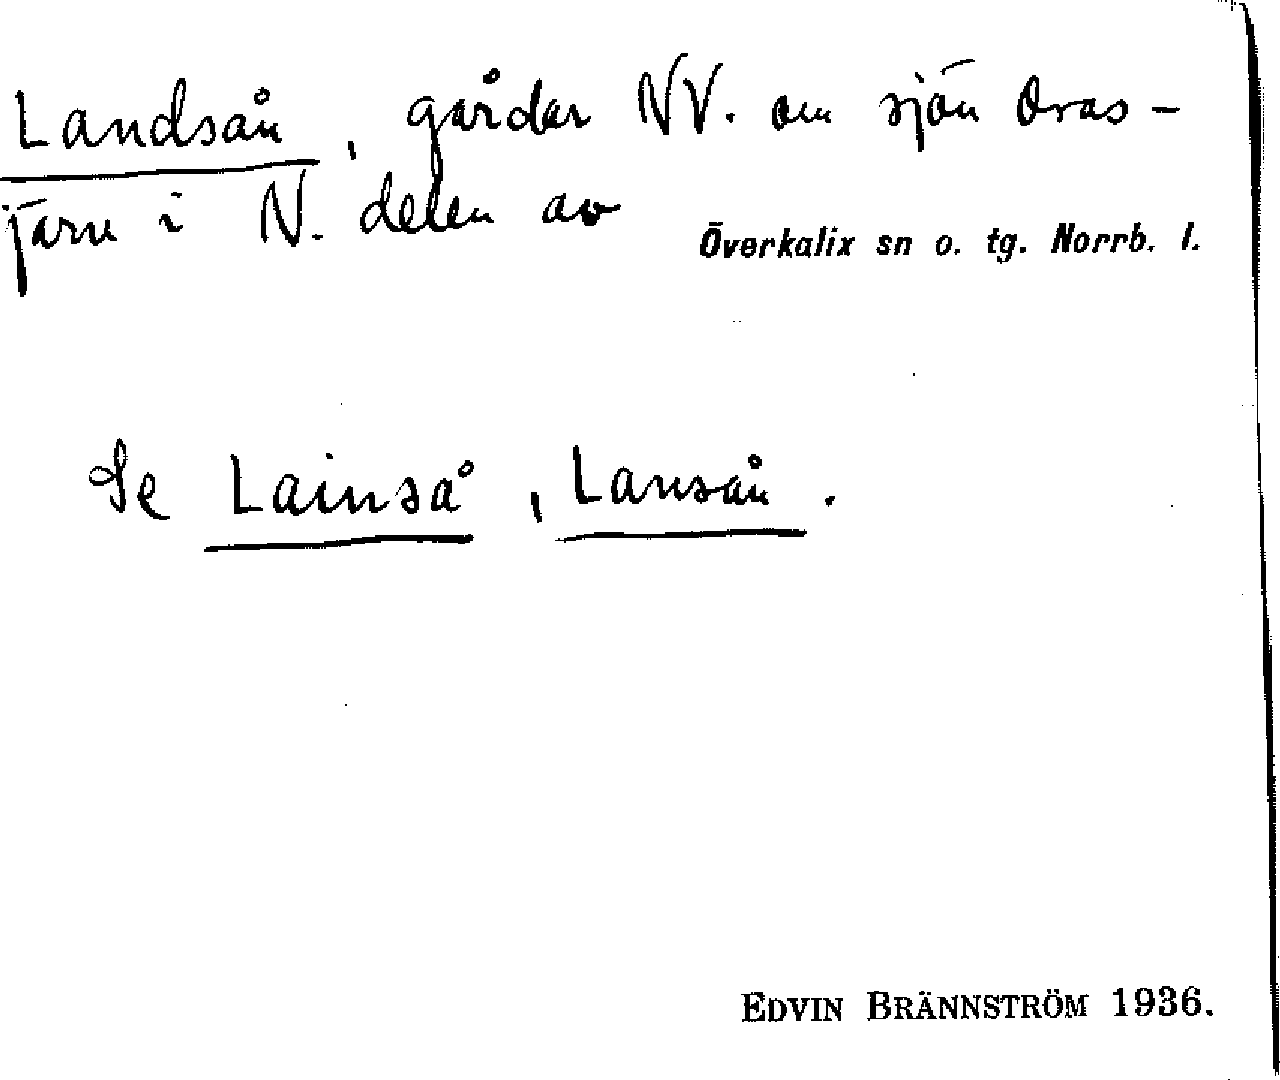 Landsån, gårdar NV. om sjön Oras-
järv i N. delen av
Överkalix sn o. tg. Norrb. l.
Se Lainså, Lansån.
EDVIN BRÄNNSTRÖM 1936.